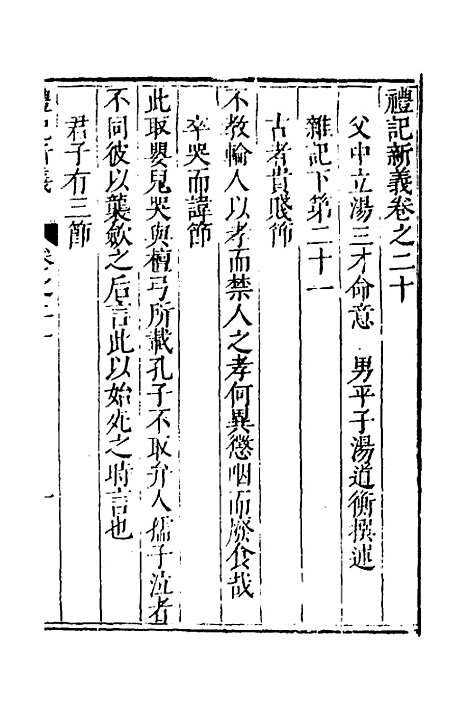 禮記新義卷之二十
父中立湯三才命意　男平子湯道衡撰述
雜記下第二十一
古者貴賤節
不教輪人以孝而禁人之孝何異懲咽而廢食哉
卒哭而諱節
此取嬰兒哭與檀弓所載孔子不取弁人孺子泣者
不同彼以襲斂之后言此以始死之時言也
君子有三節
禮記新義　卷之二十　一